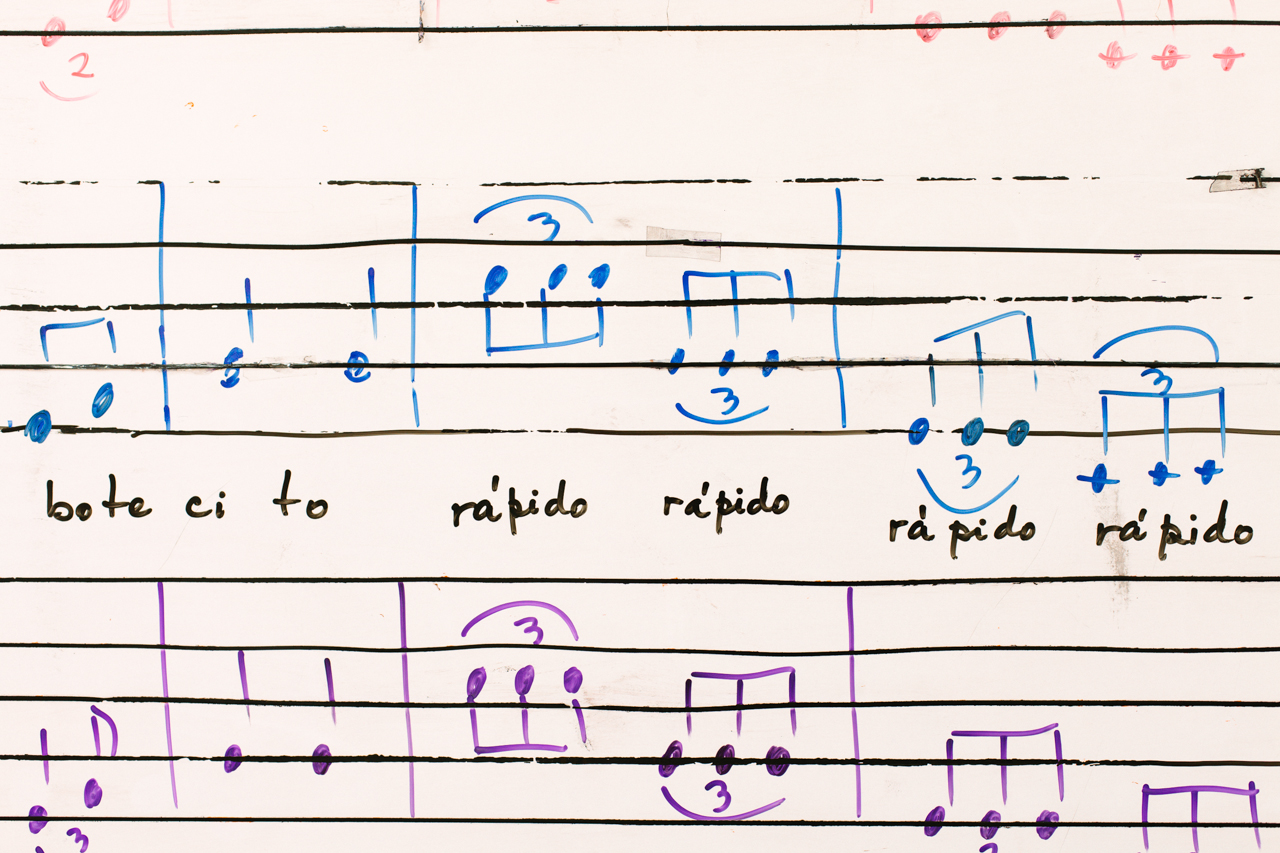 2
3
3
3
3
bote ci to rápido rápido rá pido rápido
3
3
3